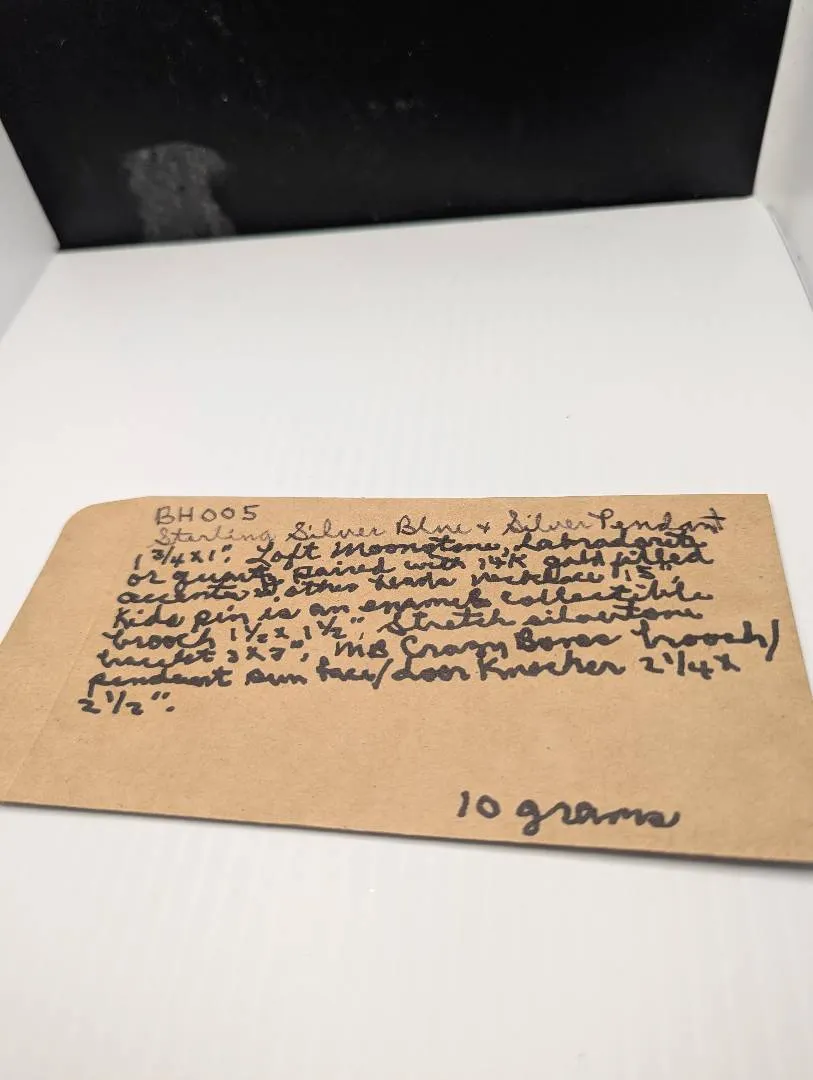 BH005
Sterling Silver Blue + Silver Pendant
1 3/4 x 1". Loft Moonstone, Labradorite
or quartz paired with 14K gold filled
accents & other beads necklace 15",
Kids pin is an enamel collectible
brooch 1 1/2 x 1 1/2", Stretch silvertone
bracelet 3 x 3", MB Crazy Bones brooch/
pendant sun face/door Knocker 2 1/4 x
2 1/2".
10 grams